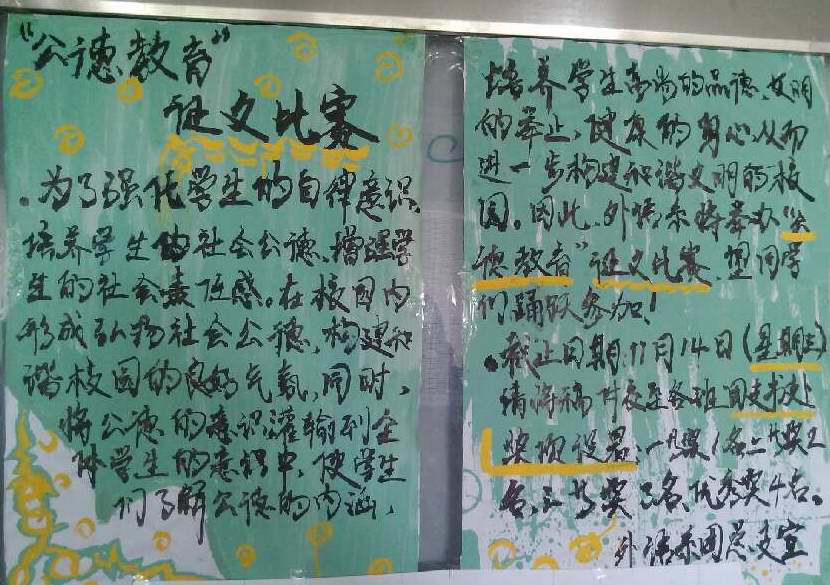 “公德教育”
征文比赛
。为了强化学生的自律意识，
培养学生的社会公德，增强学
生的社会责任感。在校园内
形成弘扬社会公德，构建和
谐校园的良好气氛，同时，
将公德的意识灌输到全
体学生的意识中，使学生
们了解公德的内涵，
培养学生高尚的品德、文明
的举止，健康的身心，从而
进一步构建和谐文明的校
园。因此，外语系将举办“公
德教育”征文比赛，望同学
们踊跃参加！
。截止日期：11月14日（星期三）
请将稿件交至各班团支书处
奖项设置：一等奖1名二等奖2
名，三等奖3名，优秀奖4名。
外语系团总支宣